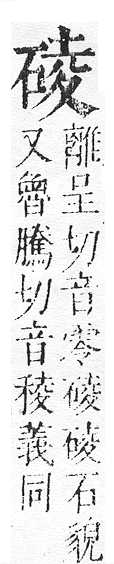 䃖
離呈切音零䃖䃖石貌
又魯騰切音稜義同